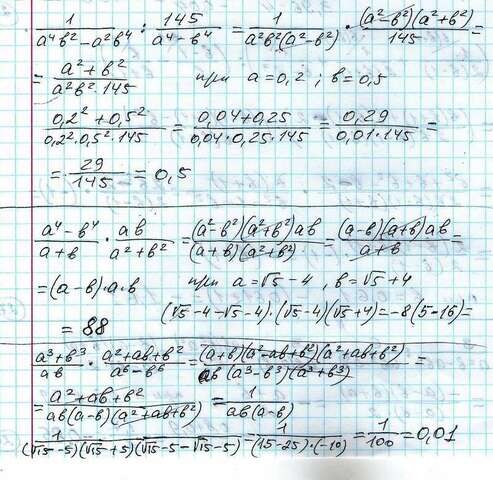 1/(a⁴b² − a²b⁴) : 145/(a⁴ − b⁴) = 1/(a²b²(a² − b²)) · (a² − b²)(a² + b²)/145 =
= (a² + b²)/(a²b² · 145) при a = 0,2 ; b = 0,5
(0,2² + 0,5²)/(0,2² · 0,5² · 145) = (0,04 + 0,25)/(0,04 · 0,25 · 145) = 0,29/(0,01 · 145) =
= 29/145 = 0,5
(a⁴ − b⁴)/(a + b) · ab/(a² + b²) = (a² − b²)(a² + b²)ab/((a + b)(a² + b²)) = (a − b)(a + b)ab/(a + b) =
= (a − b) · a · b при a = √5 − 4 , b = √5 + 4
(√5 − 4 − √5 − 4) · (√5 − 4)(√5 + 4) = −8(5 − 16) =
= 88
(a³ + b³)/(ab) · (a² + ab + b²)/(a⁶ − b⁶) = (a + b)(a² − ab + b²)(a² + ab + b²)/(ab(a³ − b³)(a³ + b³)) =
= (a² + ab + b²)/(ab(a − b)(a² + ab + b²)) = 1/(ab(a − b))
1/((√15 − 5)(√15 + 5)(√15 − 5 − √15 − 5)) = 1/((15 − 25) · (−10)) = 1/100 = 0,01